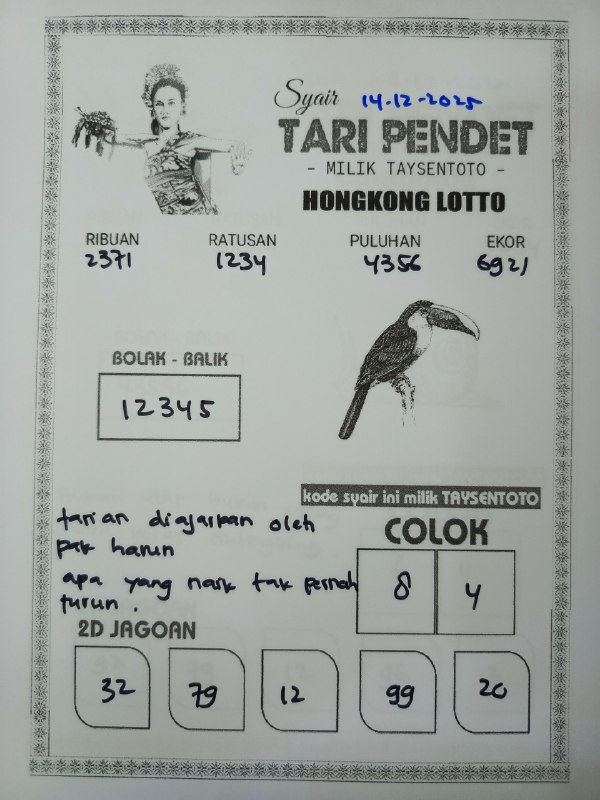 Syair 14-12-2025
TARI PENDET
- MILIK TAYSENTOTO -
HONGKONG LOTTO
RIBUAN RATUSAN PULUHAN EKOR
2371 1234 4356 6921
BOLAK - BALIK
12345
kode syair ini milik TAYSENTOTO
tarian diajarkan oleh
pak harun
apa yang naik tak pernah
turun.
COLOK
8 4
2D JAGOAN
32 79 12 99 20